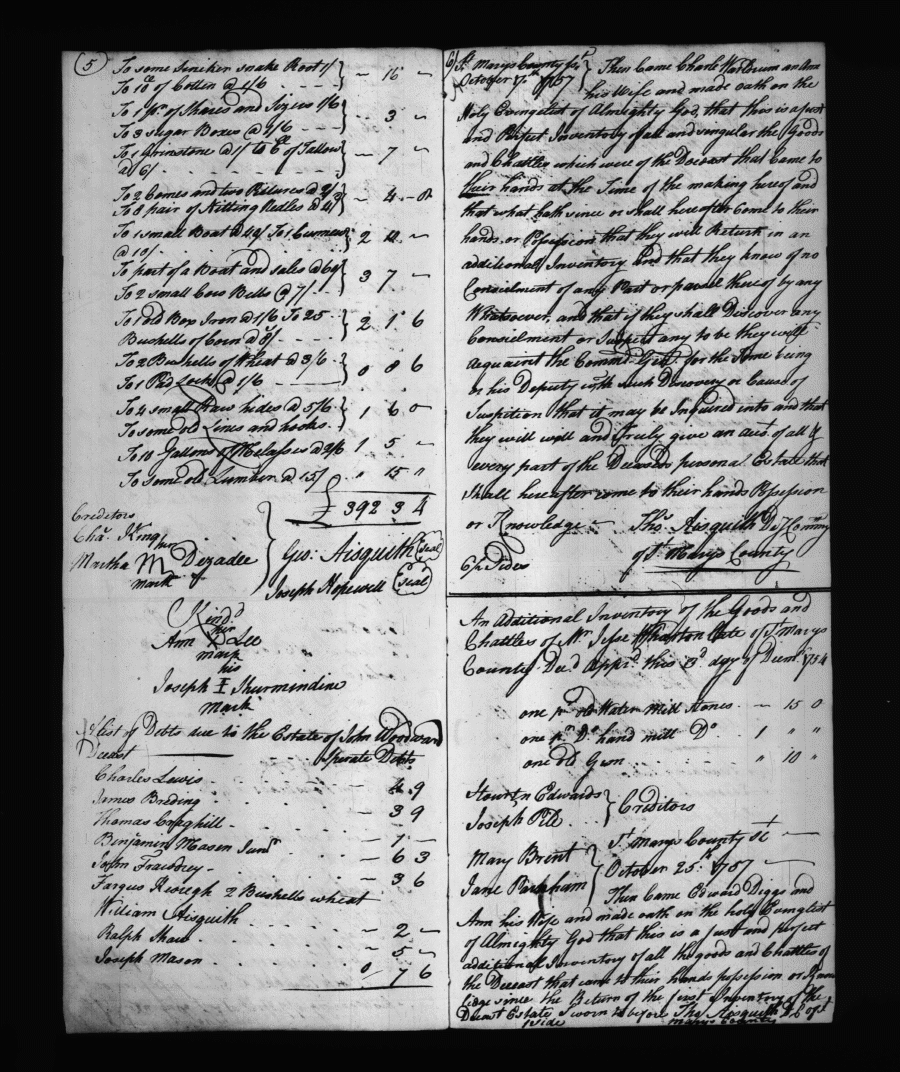 5
To some Siniker snake Root 1/
To 10 lb of Cotten @ 1/6 } — 15 —
To 1 pr. of Shares and Sizers 1/6
To 3 Sugar Boxes @ 2/6 } — 3 —
To 1 Grinstone @ 1/ to lb of Tallow
@ 6/ } — 7 —
To 2 Comes and two @
To 8 pair of Nitting Nedles @ 4/ } — 4 — 8
To 1 small Boat @ To 1
@ 10/ } 2 —
To part of a Boat and sales @ 60/
To 2 small Cow Bells @ 7/ } 3 7 —
To 1 old Box Iron @ 1/6 To 25
Bushells of Corn @ } 2 1 6
To 2 Bushells of Wheat @ 3/6
To 1 Pad Lock @ 1/6 } 0 8 6
To 4 small Raw hides @ 5/6
To some old Lines and hooks } 1 6 0
To 10 Gallons of Molasses @ 2/6 1 5 —
To some old Lumber @ 15/ " 15 "
£ 392 3 4
Creditors
Cha. King
her
Martha M Dezadee
mark
Geo: Aisquith (Seal)
Joseph Hopewell (Seal)
Kind.
her
Ann X Lee
mark
his
Joseph I Thurmindine
mark
A list of Debts due to the Estate of John Woodward
Deceast
Sperate Debts
Charles Lewis 4 9
James Breding — 3 9
Thomas Craghill
Benjamin Mason Junr — 1 —
John Frawdrey — 6 3
Fargus 2 Bushells wheat — 3 6
William Aisquith
Ralph Shaw — 2 —
Joseph Mason — 5 —
0 7 6
6
St. Marys County sc.
October 17th 1757 } Then Came Charles an Ann
his Wife and made oath on the
Holy Evangelest of Almighty God, that this is a just
and Perfect Inventory of all and singular the Goods
and Chattles which were of the Deceast that Came to
their hands at the Time of the making hereof and
that what hath since or shall hereafter Come to their
hands or Possession that they will Return in an
additional Inventory and that they know of no
Consielment of any Part or parcel thereof by any
Whatsoever, and that if they shall Discover any
Consielment or suspect any to be they will
acquaint the Commr. Genl. for the time being
or his Deputy with such Discovery or Cause of
Suspition that it may be Inquired into and that
they will well and Truly give an Acct. of all &
every part of the Deceasts personal Estate that
shall hereafter come to their hands Possession
or Knowledge — Ths. Aisquith Dy Commry
6 pr Sides of St. Marys County
An Additional Inventory of the Goods and
Chattles of Mr. Jesse Wharton late of St. Marys
County Decd. Apprd. this 3d day of Decmr. 1754
one pr old Water Mill Stones — 15 0
one pr. Do hand mill Do 1 " "
one old Gun " 10 "
Stourtn Edwards
Joseph Pile } Creditors
Mary Brent
Jane Parnham
St. Marys County Sct
October 25th 1757
Then Came Edward Diggs and
Ann his Wife and made oath on the holy Evanglest
of Almighty God that this is a just and perfect
additional Inventory of all the goods and Chattles of
the Deceast that came to their hands possession or Know
ledge since the Return of the first Inventory of the
Deceast Estate, Sworn to before Ths. Aisquith D. C. of St.
1 Side Marys County